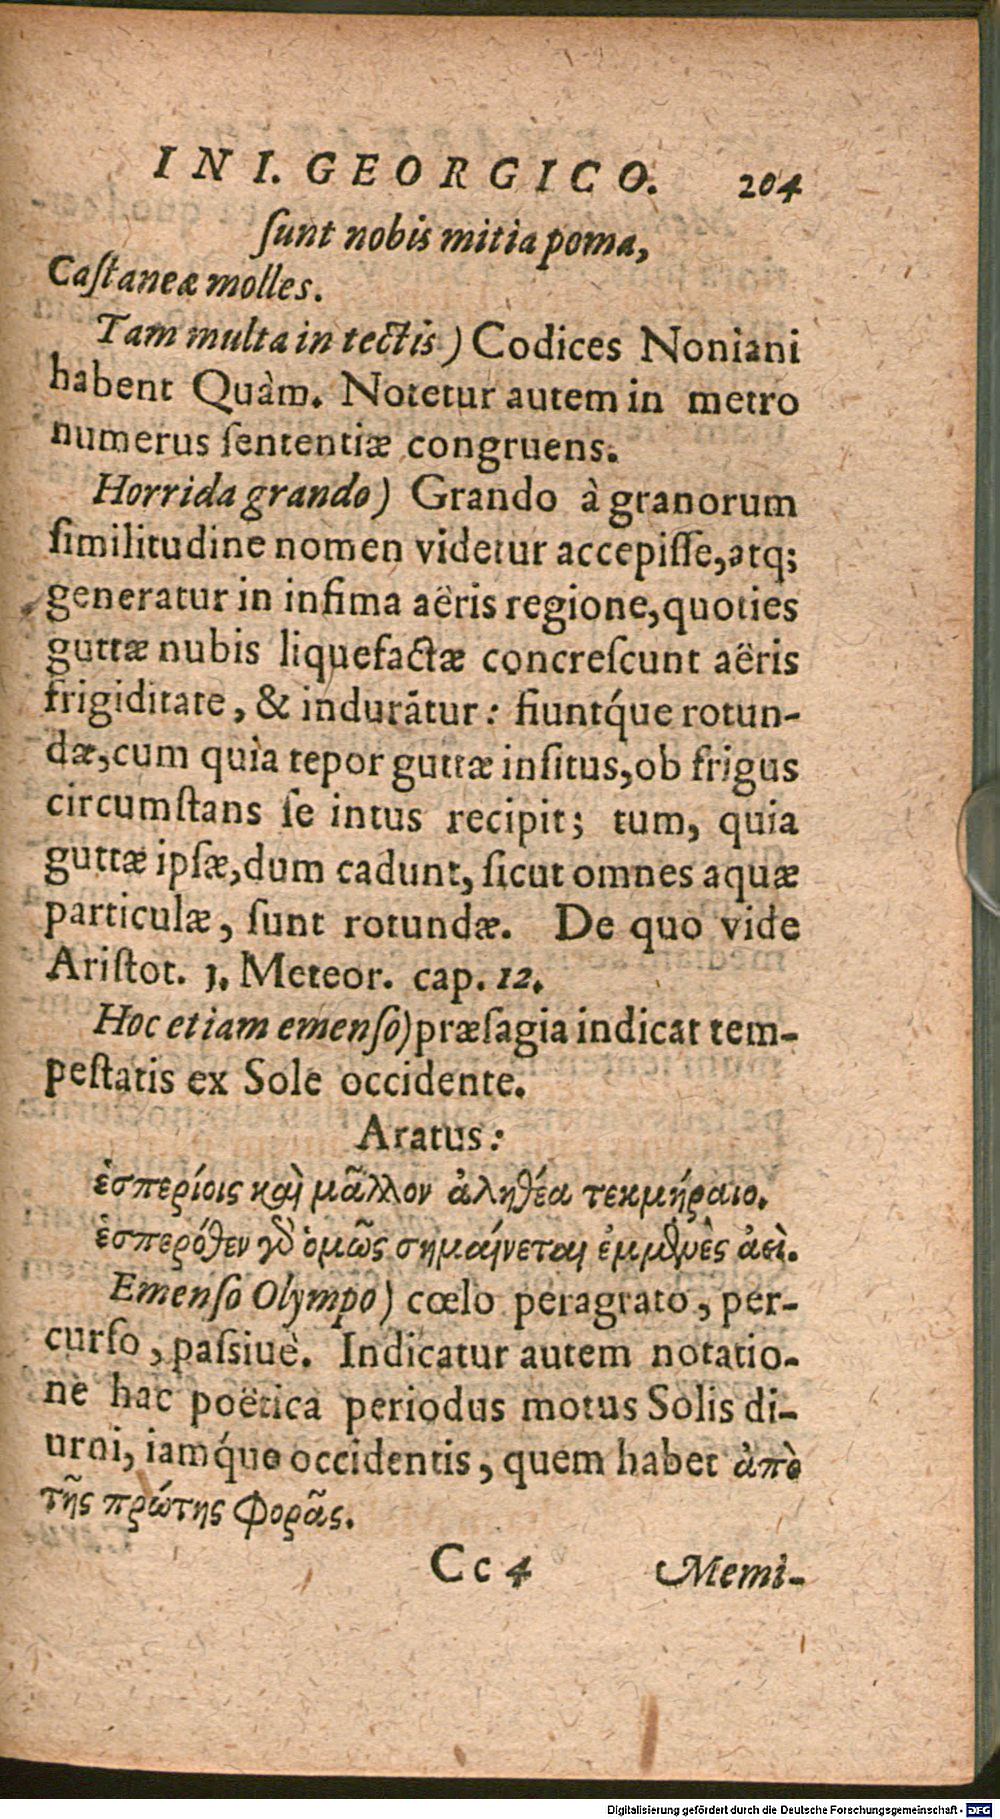 IN I. GEORGICO. 204
ſunt nobis mitia poma,
Caſtaneæ molles.
Tam multa in tectis) Codices Noniani
habent Quàm. Notetur autem in metro
numerus ſententiæ congruens.
Horrida grando) Grando à granorum
ſimilitudine nomen videtur accepiſſe, atq;
generatur in infima aëris regione, quoties
guttæ nubis liquefactæ concreſcunt aëris
frigiditate, & indurātur: fiuntq́ue rotun-
dæ, cum quia tepor guttæ inſitus, ob frigus
circumſtans ſe intus recipit; tum, quia
guttæ ipſæ, dum cadunt, ſicut omnes aquæ
particulæ, ſunt rotundæ. De quo vide
Ariſtot. 1. Meteor. cap. 12.
Hoc etiam emenſo) præſagia indicat tem-
peſtatis ex Sole occidente.
Aratus:
ἑσπερίοις καὶ μᾶλλον ἀληθέα τεκμήραιο.
ἑσπερόθεν γὸ ὁμῶς σημαίνεται ἐμμενὲς ἀεὶ.
Emenſo Olympo) cœlo peragrato, per-
curſo, paſsiuè. Indicatur autem notatio-
ne hac poëtica periodus motus Solis di-
urni, iamq́ue occidentis, quem habet ἀπὸ
τῆς πρώτης φορᾶς.
Cc 4 Memi-
Digitalisierung gefördert durch die Deutsche Forschungsgemeinschaft - DFG